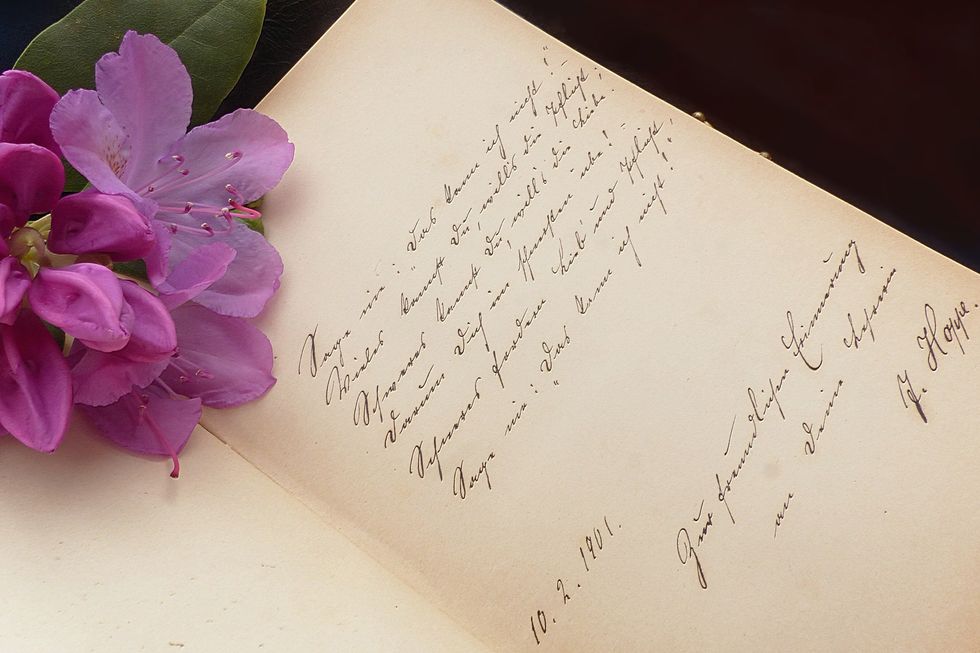 Sage nie: „Das kann ich nicht!“ –
Vieles kannst Du, will's die Pflicht;
Schweres kannst Du, will's die Liebe.
Darum Dich im Schwersten übe! –
Schweres fordern Lieb' und Pflicht,
Sage nie: „Das kann ich nicht!“
Zur freundlichen Erinnerung
an Deine Lehrerin
J. Hoppe.
10. 2. 1901.